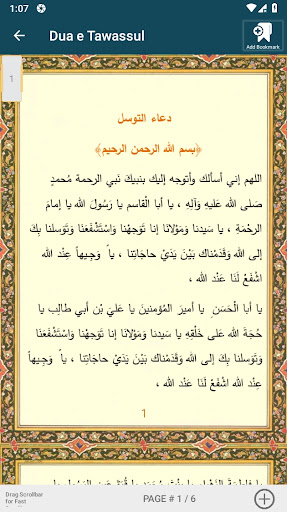 1:07
Dua e Tawassul
Add Bookmark
1
دعاء التوسل
﴿بسم الله الرحمن الرحيم﴾
اللهم إني أسألك وأتوجه إليك بنبيك نَبي الرحمة مُحمدٍ
صَلى الله عَليهِ وَآلِهِ ، يا أبا الْقاسمِ يا رَسُولَ الله يا إمامَ
الرحْمَةِ ، يا سَيدنا وَمَوْلانَا إنا تَوَجهْنا وَاسْتَشْفَعْنَا وَتَوسلنا بِكَ
إلى الله وَقَدمْناكَ بَيْنَ يَدَيْ حاجَاتِنا ، يا وَجِيهاً عِنْدَ الله
اشْفَعْ لَنَا عَنْدَ الله ،
يا أبا الْحَسَنِ يا أميرَ المُؤمِنينَ يا عَليَ بْنَ أبي طالِبِ يا
حُجةَ الله عَلى خَلْقِهِ يا سَيدَنا وَمَوْلانَا إنا تَوَجهْنا وَاسْتَشْفَعْنَا
وَتوسلنا بِكَ إلى الله وَقَدمْنَاكَ بَيْنَ يَدَيْ حاجَاتِنا ، يا وَجِيهاً
عِنْدَ الله اشْفَعْ لَنَا عَنْدَ الله ،
1
Drag Scrollbar
for Fast
PAGE # 1 / 6